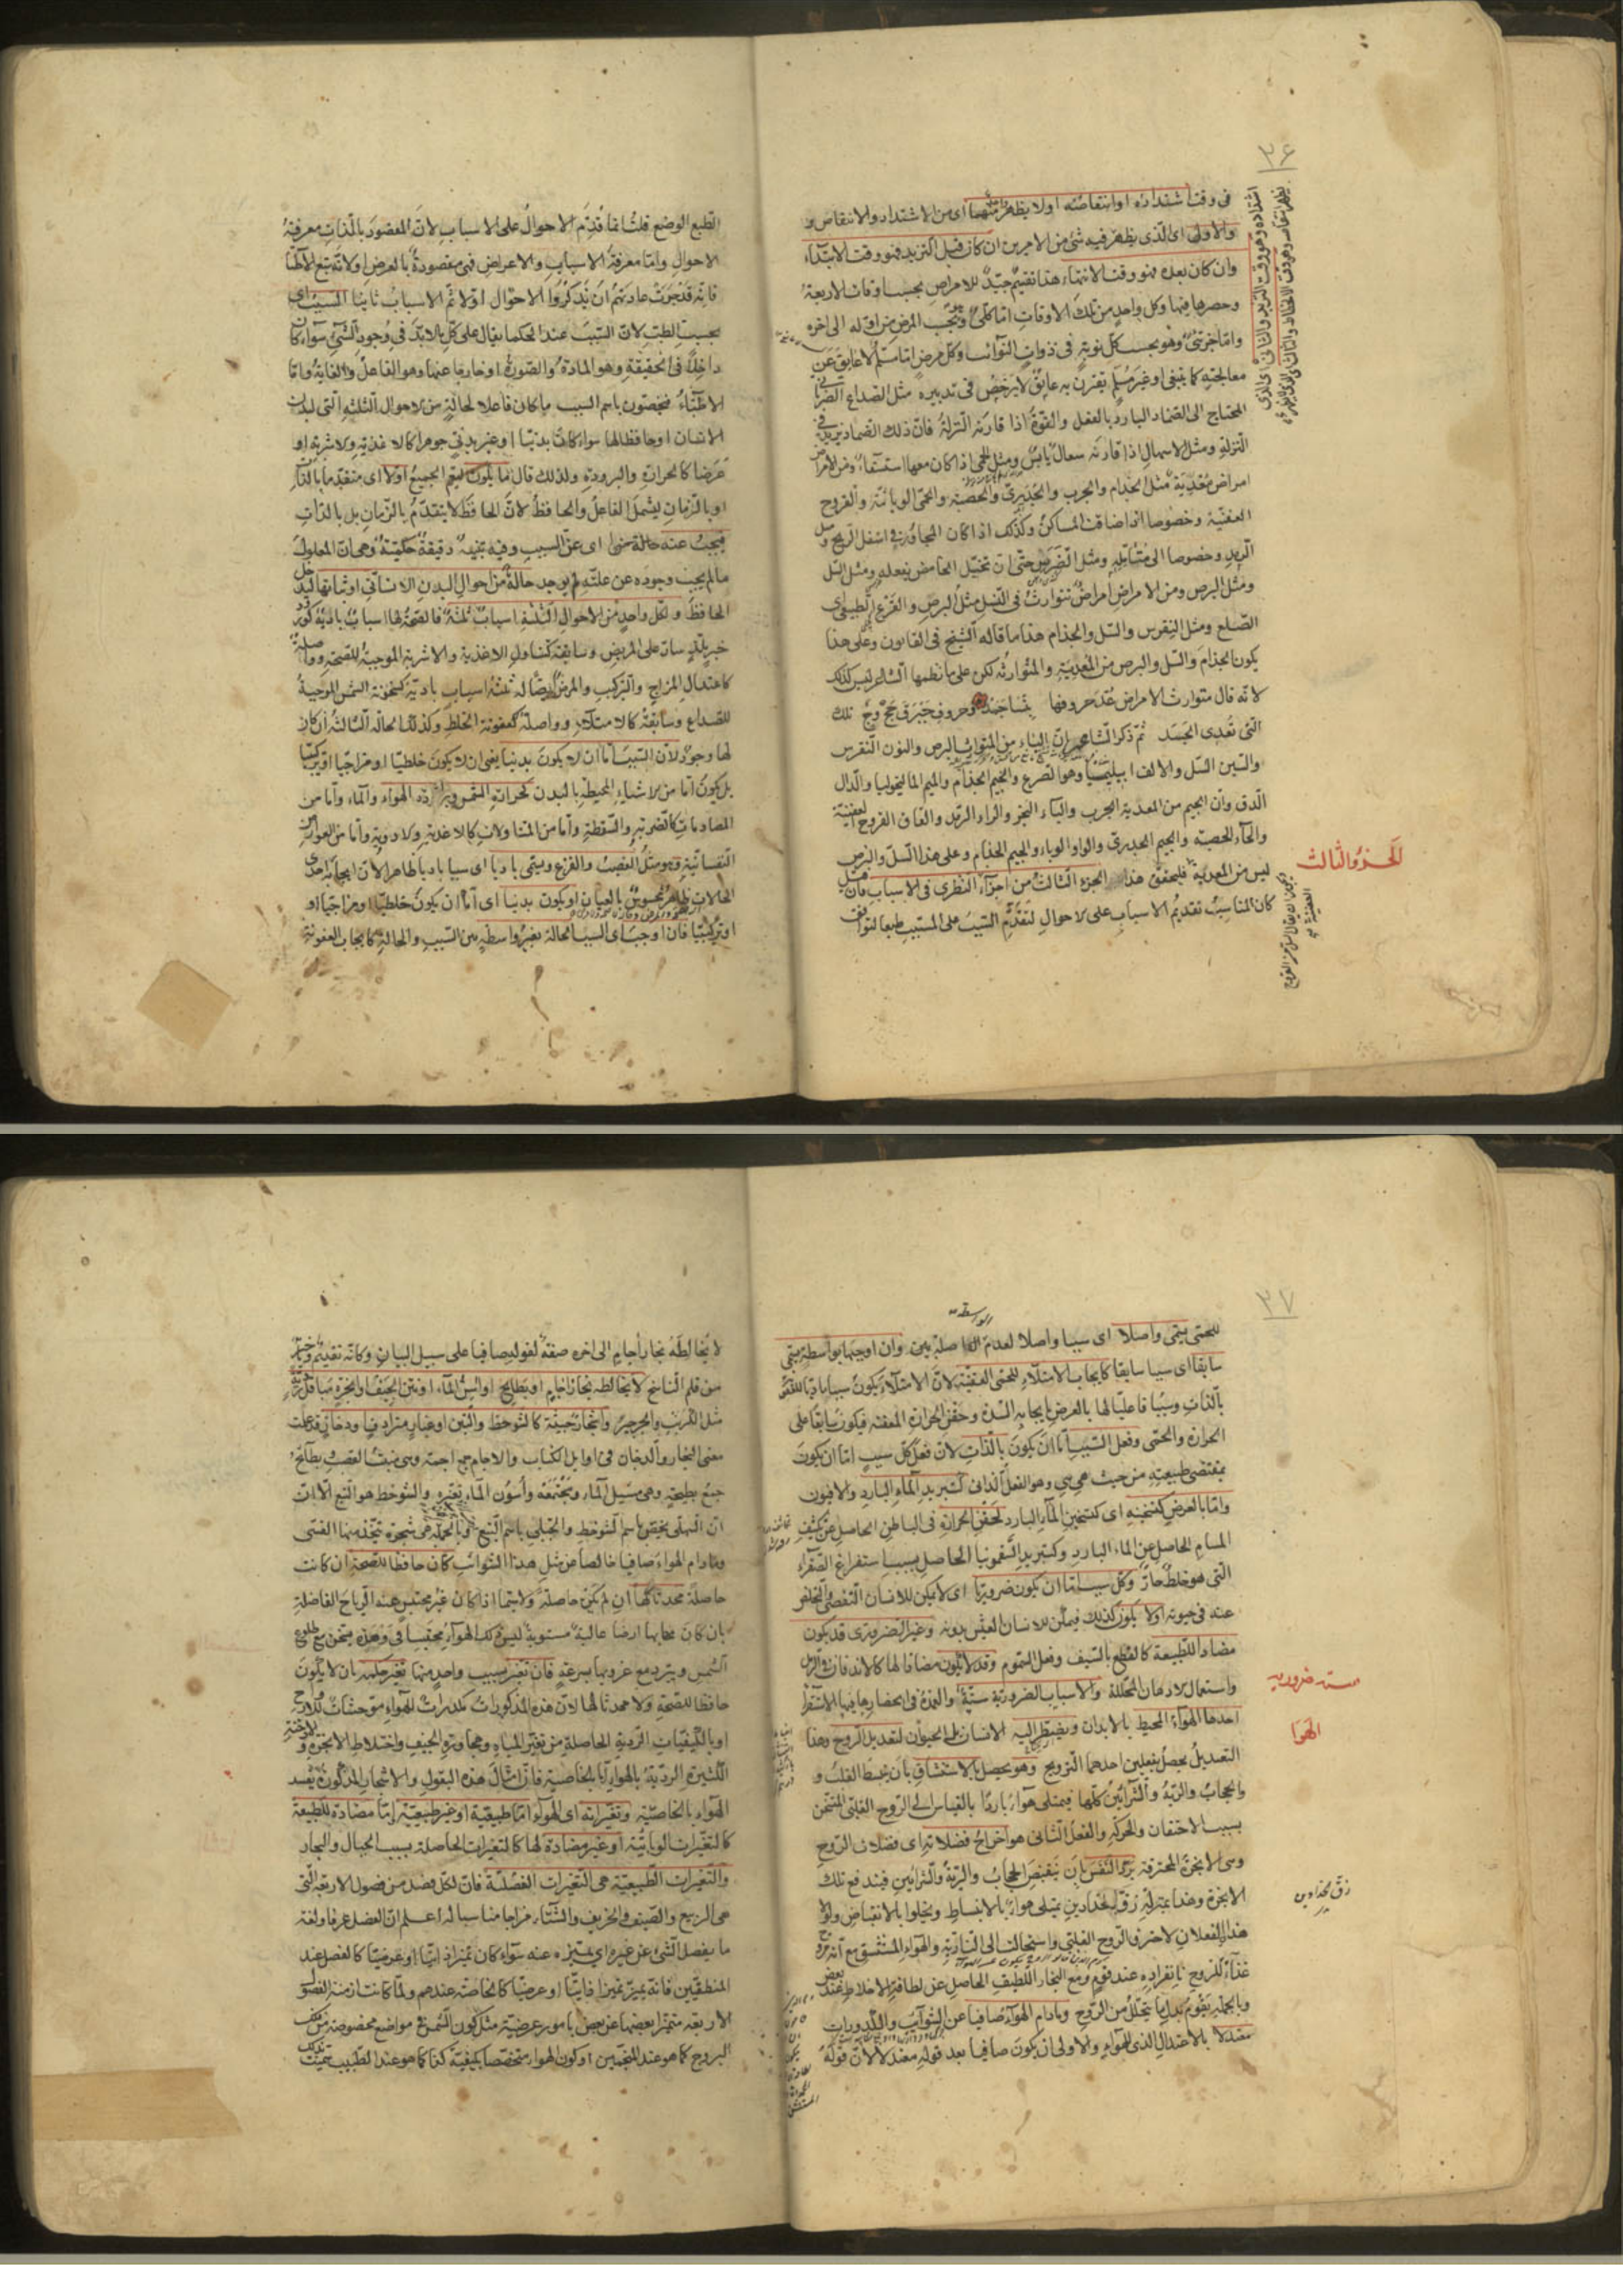 ٣۶
فى وقت اشتداده او انتقاصه او لا يظهر شئ منهما اى من الاشتداد والانتقاص و
والاولى اى الذى يظهر فيه شئ من الامرين ان كان قبل التزيد فهو وقت الابتداء
وان كان بعده فهو وقت الانتهاء هذا تقسيم جيّد للامراض بحسب اوقات الاربعة
وحصرها فيها وكل واحد من تلك الاوقات اما كلى وهو بحسب المرض من اوله الى اخره
واما جزئى وهو بحسب كل نوبة فى ذوات النوائب وكل مرض اما مسلم لا عايق عن
معالجته كما ينبغى او غير مسلم يقترن به عايق لا يرخص فى تدبيره مثل الصداع
المحتاج الى الضماد البارد بالفعل والقوة اذا قارنه النزلة فان ذلك الضماد يزيد فى
النزلة ومثل الاسهال اذا قارنه سعال يابس ومثل الحمى اذا كان معها استسقاء ومن الامراض
امراض مُعْدِيَة مثل الجذام والجرب والجدرى والحصبة والحمى الوبائية والقروح
العفنية وخصوصا اذا ضاقت المساكن وكذلك اذا كان المجاور فى اسفل الريح ومثل
الرمد وخصوصا الى متأمليه ومثل الضرس حتى ان تخيل الحامض يفعله ومثل السل
ومثل البرص ومن الامراض امراض تتوارث فى النسل مثل البرص والقرع الطبيعى اى
الصلع ومثل النقرس والسل والجذام هذا ما قاله الشيخ فى القانون وعلى هذا
يكون الجذام والسل والبرص من المعدية والمتوارثة لكن على ما نظمها الشاعر ليس كذلك
لانه قال متوارث الامراض عُدّ حروفها وحروف تلك
التى تُعدى الجسد ثم ذكر الشاعر ان الباء من المتوارث البرص والنون النقرس
والسين السل والالف ابيليميا وهو الصرع والجيم الجذام والميم الماليخوليا والدال
الدق وان الجيم من المعدية الجرب والباء البخر والراء الرمد والقاف القروح العفنية
والحاء الحصبة والجيم الجدرى والواو الوباء والجيم الجذام وعلى هذا السل والبرص
ليس من المعدية فليحقق هذا الجزء الثالث من اجزاء النظرى فى الاسباب فان قيل
كان المناسب تقديم الاسباب على الاحوال لتقدم السبب على المسبب طبعا ليوافق
الجزو الثالث
الطبع الوضع قلت انما قدم الاحوال على الاسباب لان المقصود بالذات معرفة
الاحوال واما معرفة الاسباب والاعراض فهى مقصودة بالعرض او لانه تبع الاطباء
فانه قد جرت عادتهم ان يذكروا الاحوال اولا ثم الاسباب ثانيا السبب اى
بحسب الطب لان السبب عند الحكما يقال على كل ما لا بد فى وجود الشئ سواء كان
داخلا فى الحقيقة وهو المادة والصورة او خارجا عنها وهو الفاعل والغاية واما
الاطباء فيخصون باسم السبب ما كان فاعلا لحالة من الاحوال الثلثه التى لبدن
الانسان او حافظا لها سواء كان بدنيا او غير بدنى جوهرا كالاغذية والاشربة او
عرضا كالحرارة والبرودة ولذلك قال ما يكون ليعم الجميع اولا اى متقدما بالذات
او بالزمان ليشمل الفاعل والحافظ لان الحافظ لا يتقدم بالزمان بل بالذات
فيجب عنه حالة اى عن السبب وفيه دقيقة حكمية وهى ان المعلول
ما لم يجب وجوده عن علته لم يوجد حالة من احوال البدن الانسانى او ثباتها ليدخل
الحافظ ولكل واحد من الاحوال الثلثة اسباب ثلثة فالصحة لها اسباب بادية كورود
خبر سار على المريض وسابقة كتناول الاغذية والاشربة الموجبة للصحة وواصلة
كاعتدال المزاج والتركيب والمرض ايضا له ثلثة اسباب بادية كسخونة الشمس الموجبة
للصداع وسابقة كالامتلاء وواصلة كعفونة الخلط وكذلك الحالة الثالثة ان كان
لها وجود لان السبب اما ان لا يكون بدنيا يعنى ان لا يكون خلطيا او مزاجيا او تركيبيا
بل يكون اما من الاشياء المحيطة بالبدن كحرارة الشمس وبرودة الهواء والماء واما من
المصادمات كالضربة والسقطة واما من المتناولات كالاغذية والادوية واما من العوارض
النفسانية وهو مثل الغضب والفزع ويسمى باديا اى سببا باديا ظاهرا لان ايجابه احدى
الحالات ظاهر محسوس بالعيان او يكون بدنيا اى اما ان يكون خلطيا او مزاجيا او
او تركيبيا فان اوجب اى السبب الحالة بغير واسطة بين السبب والحالة كايجاب العفونة
٣٧
للحمى يسمى واصلا اى سببا واصلا لعدم بين وان اوجبها بواسطة يسمى
سابقا اى سببا سابقا كايجاب الامتلاء للحمى العفنية لان الامتلاء يكون سببا
بالذات وسببا فاعليا لها بالعرض بايجابه السدة وحقن الحرارة المعفنة فيكون سابقا على
الحرارة والحمى وفعل السبب اما ان يكون بالذات لان فعل كل سبب اما ان يكون
بمقتضى طبيعته من حيث هى هى وهو الفعل الذاتى كتبريد الماء البارد والافيون
واما بالعرض كتسخينه اى كتسخين الماء البارد لحقن الحرارة فى الباطن الحاصل عن تكثف
المسام الحاصل عن الماء البارد وكتبريد السقمونيا الحاصل بسبب استفراغ الصفراء
التى هو خلط حار وكل سبب اما ان يكون ضروريا اى لا يمكن للانسان التفصى والتخلص
عنه فى حيوته او لا يكون كذلك فيمكن للانسان العيش بدونه وغير الضرورى قد يكون
مضادا للطبيعة كالقطع بالسيف وفعل السموم وقد لا يكون مضادا لها كالاندفان فى الرمل
واستعمال الادهان المحللة والاسباب الضرورية ستة والعمدة فى انحصارها فيها الاستقراء
احدها الهواء المحيط بالابدان ويضطر اليه الانسان بل الحيوان لتعديل الروح وهذا
التعديل يحصل بفعلين احدهما الترويح وهو يحصل بالاستنشاق بان ينبسط القلب و
والحجاب والرية والشرائين كلها فيمتلى هواء باردا بالقياس الى الروح القلبى المتسخن
بسبب الاحتقان والحركة والفعل الثانى هو اخراج فضلاته اى فضلات الروح
وهى الابخرة المحترقة برد النفس بان ينقبض الحجاب والرية والشرائين فيندفع تلك
الابخرة وهذا بمنزلة زق الحدادين يمتلى هواء بالانبساط ويخلوا بالانقباض ولولا
هذان الفعلان لاحترق الروح القلبى واستحالت الى النارية والهواء المستنشق مع انه مروح
غذاء للروح بانفراده عند قوم ومع البخار اللطيف الحاصل عن لطافة الاخلاط عند بعض
وبالجملة يقوم بدل ما يتحلل من الروح وما دام الهواء صافيا عن الشوائب والكدورات
معتدلا بالاعتدال الذى للهواء والاولى ان يكون صافيا بعد قوله معتدلا لان قوله
ستة ضروريه
الهوا
زق الحدادين
لا يخالطه بخار اجام الى اخره صفة لقوله صافيا على سبيل البيان وكانه تقديم وتاخير
من قلم الناسخ لا يخالطه بخار اجام او بطايح او اسن الماء او نتن الجيف او ابخرة مباقل
مثل الكرنب والجرجير واشجار خبيثة كالشوحط والتين او غبار مترادف او دخان قد علمت
معنى البخار والدخان فى اوايل الكتاب والاجام جمع اجمة وهى منبت القصب بطايح
جمع بطيحة وهى مسيل الماء ومجتمعه واسون الماء تغيره والشوحط هو النبع الا ان
ان السهلى يختص باسم الشوحط والجبلى باسم النبع وبالجملة هى شجرة يتخذ منها القسى
وما دام الهواء صافيا خالصا عن مثل هذا الشوائب كان حافظا للصحة ان كانت
حاصلة محدثا لها ان لم يكن حاصلة ولا سيما اذا كان غير محتبس عنه الرياح الفاضلة
بان كان مهابها ارضا عالية مستوية ليس ذلك الهواء محتبسا فى وهدة يتسخن مع طلوع
الشمس ويتبرد مع غروبها بسرعة فان تغير بسبب واحد منها تغير حكمه بان لا يكون
حافظا للصحة ولا محدثا لها لان هذه المذكورات مكدرات للهواء موحشات للارواح
او بالكيفيات الردية الحاصلة من تغير المياه ومجاورة الجيف واختلاط الابخرة و
الكثيرة الردية بالهواء اما بالخاصية فان امثال هذه البقول والاشجار المذكورة يفسد
الهواء بالخاصية وتغيراته اى الهواء اما طبيعية او غير طبيعية اما مضادة للطبيعة
كالتغيرات الوبائية او غير مضادة لها كالتغيرات الحاصلة بسبب الجبال والبحار
والتغيرات الطبيعية هى التغيرات الفصلية فان لكل فصل من فصول الاربعة التى
هى الربيع والصيف والخريف والشتاء مزاجا مناسبا له اعلم ان الفصل عرفا ولغة
ما يفصل الشئ عن غيره اى يتميزه عنه سواء كان تميزا ذاتيا او عرضيا كالفصل عند
المنطقيين فانه يميز تميزا ذاتيا او عرضيا كالخاصة عندهم ولما كانت ازمنة الفصول
الاربعة متميزا بعضها عن بعض بامور عرضية مثل كون الشمس فى مواضع مخصوصة من فلك
البروج كما هو عند المنجمين او كون الهواء متخصصا بكيفية كذا كما هو عند الطبيب سميت